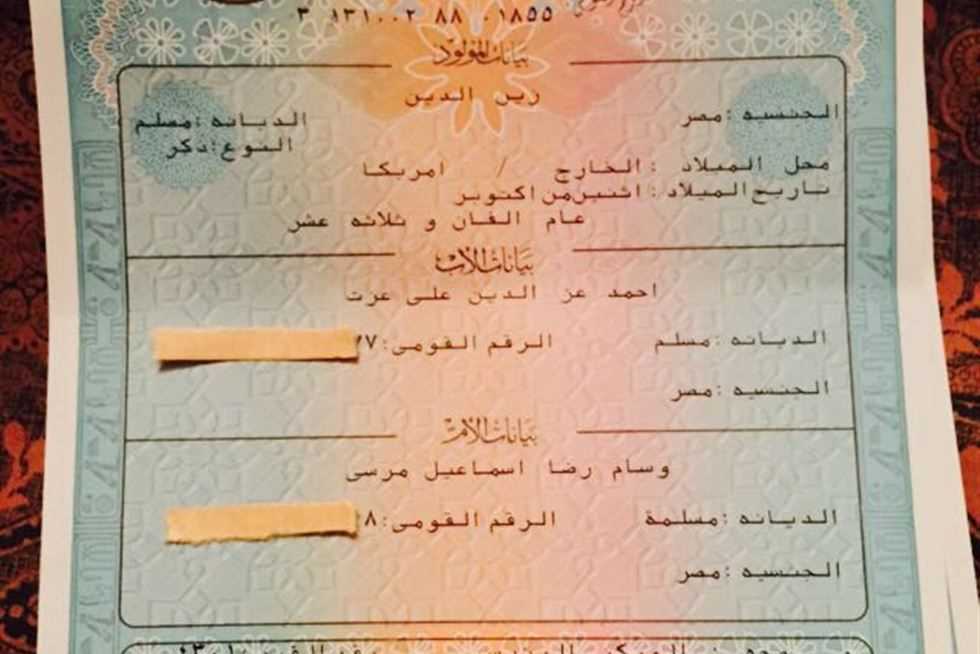 ٣ ١٣١٠٠٢ ٨٨ ٠١٨٥٥
بيانات المولود
زين الدين
الجنسيه : مصر
الديانه : مسلم
النوع : ذكر
محل الميلاد : الخارج / امريكا
تاريخ الميلاد : اثنين من اكتوبر
عام الفان و ثلاثه عشر
بيانات الأب
احمد عز الدين على عزت
الديانه : مسلم الرقم القومى :
الجنسيه : مصر
بيانات الأم
وسام رضا اسماعيل مرسى
الديانه : مسلمة الرقم القومى : ٨
الجنسيه : مصر